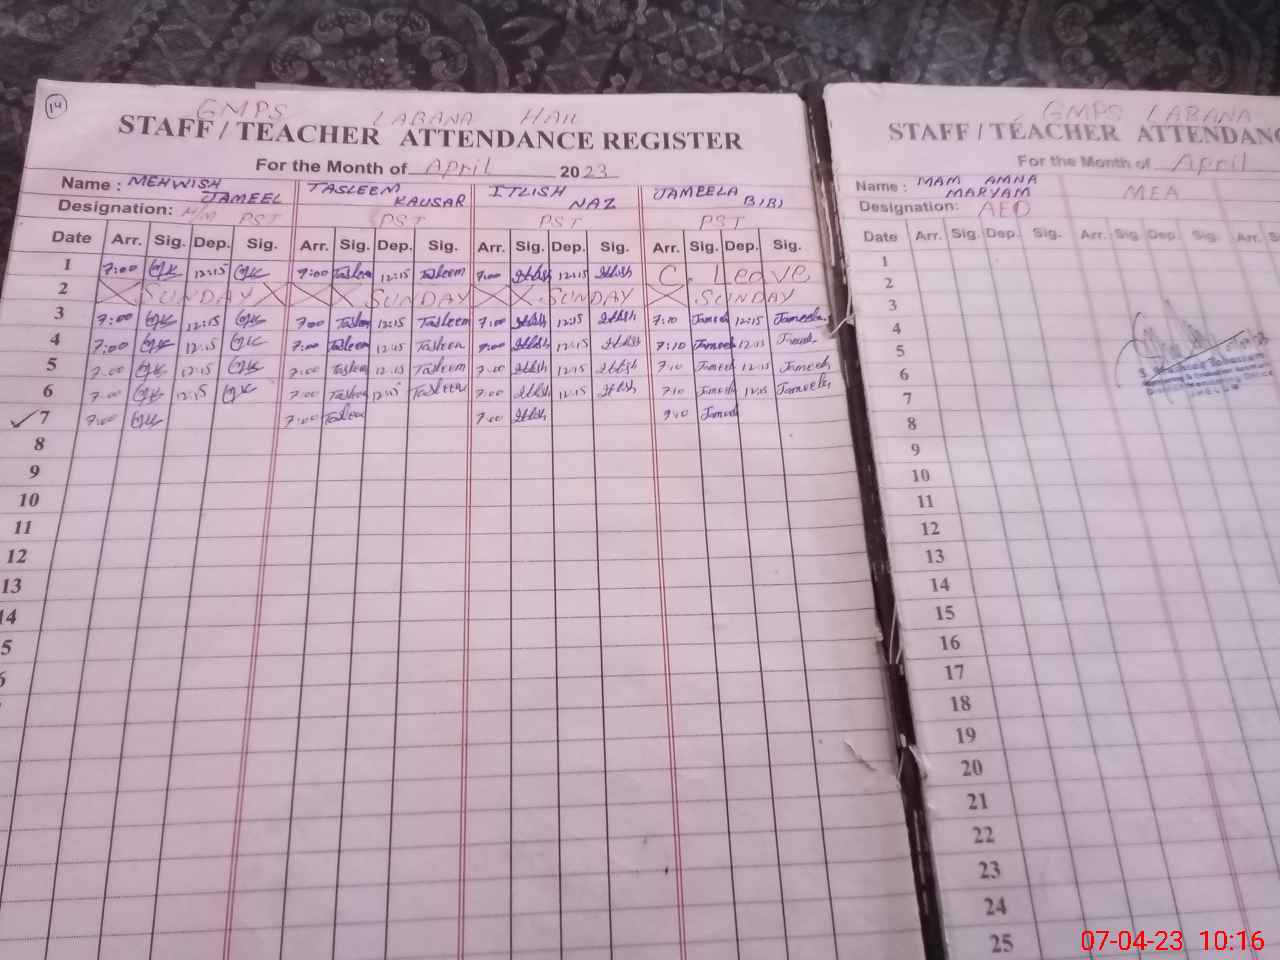 14
GMPS LABANA HAIL
STAFF / TEACHER ATTENDANCE REGISTER
For the Month of April 2023
Name : MEHWISH JAMEEL TASLEEM KAUSAR ITLISH NAZ JAMEELA BIBI
Designation: H/M PST PST PST PST
Date Arr. Sig. Dep. Sig. Arr. Sig. Dep. Sig. Arr. Sig. Dep. Sig. Arr. Sig. Dep. Sig.
1 7:00 12:15 7:00 Tasleem 12:15 Tasleem 7:00 Itlish 12:15 Itlish C. Leave
2 SUNDAY SUNDAY SUNDAY SUNDAY
3 7:00 12:15 7:00 Tasleem 12:15 Tasleem 7:00 Itlish 12:15 Itlish 7:10 Jameela 12:15 Jameela
4 7:00 12:15 7:00 Tasleem 12:15 Tasleem 7:00 Itlish 12:15 Itlish 7:10 Jameela 12:15 Jameela
5 7:00 12:15 7:00 Tasleem 12:15 Tasleem 7:00 Itlish 12:15 Itlish 7:10 Jameela 12:15 Jameela
6 7:00 12:15 7:00 Tasleem 12:15 Tasleem 7:00 Itlish 12:15 Itlish 7:10 Jameela 12:15 Jameela
7 7:00 7:00 Tasleem 7:00 Itlish Jameela
8
9
10
11
12
13
14
5
GMPS LABANA
STAFF / TEACHER ATTENDANC
For the Month of April
Name : MAM AMNA MARYAM MEA
Designation: AEO
Date Arr. Sig. Dep. Sig. Arr. Sig. Dep. Sig. Arr. S
1
2
3
4
5
6
7
8
9
10
11
12
13
14
15
16
17
18
19
20
21
22
23
24
25
07-04-23 10:16